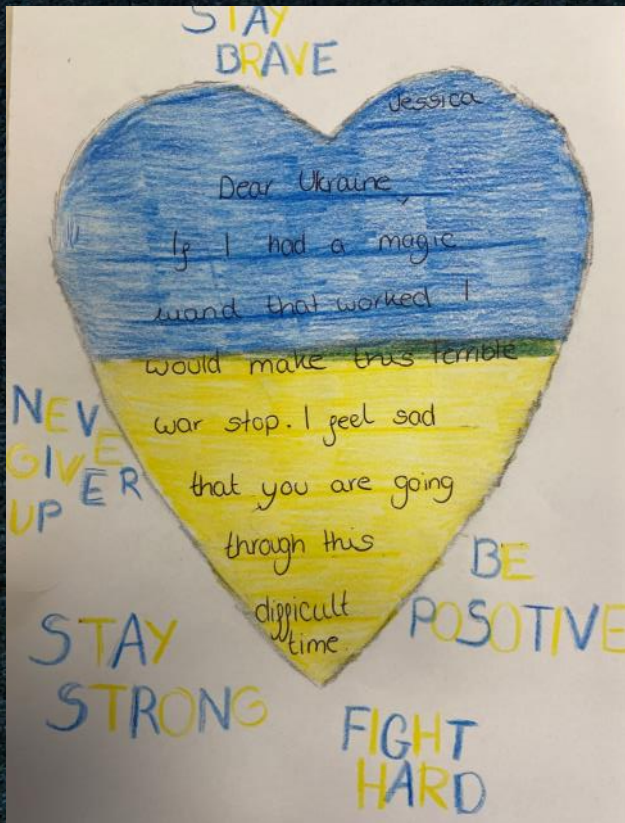 STAY
BRAVE
Jessica
Dear Ukraine,
If I had a magic
wand that worked I
would make this terrible
war stop. I feel sad
that you are going
through this
difficult
time.
NEVER
GIVE
UP
BE
POSOTIVE
STAY
STRONG
FIGHT
HARD